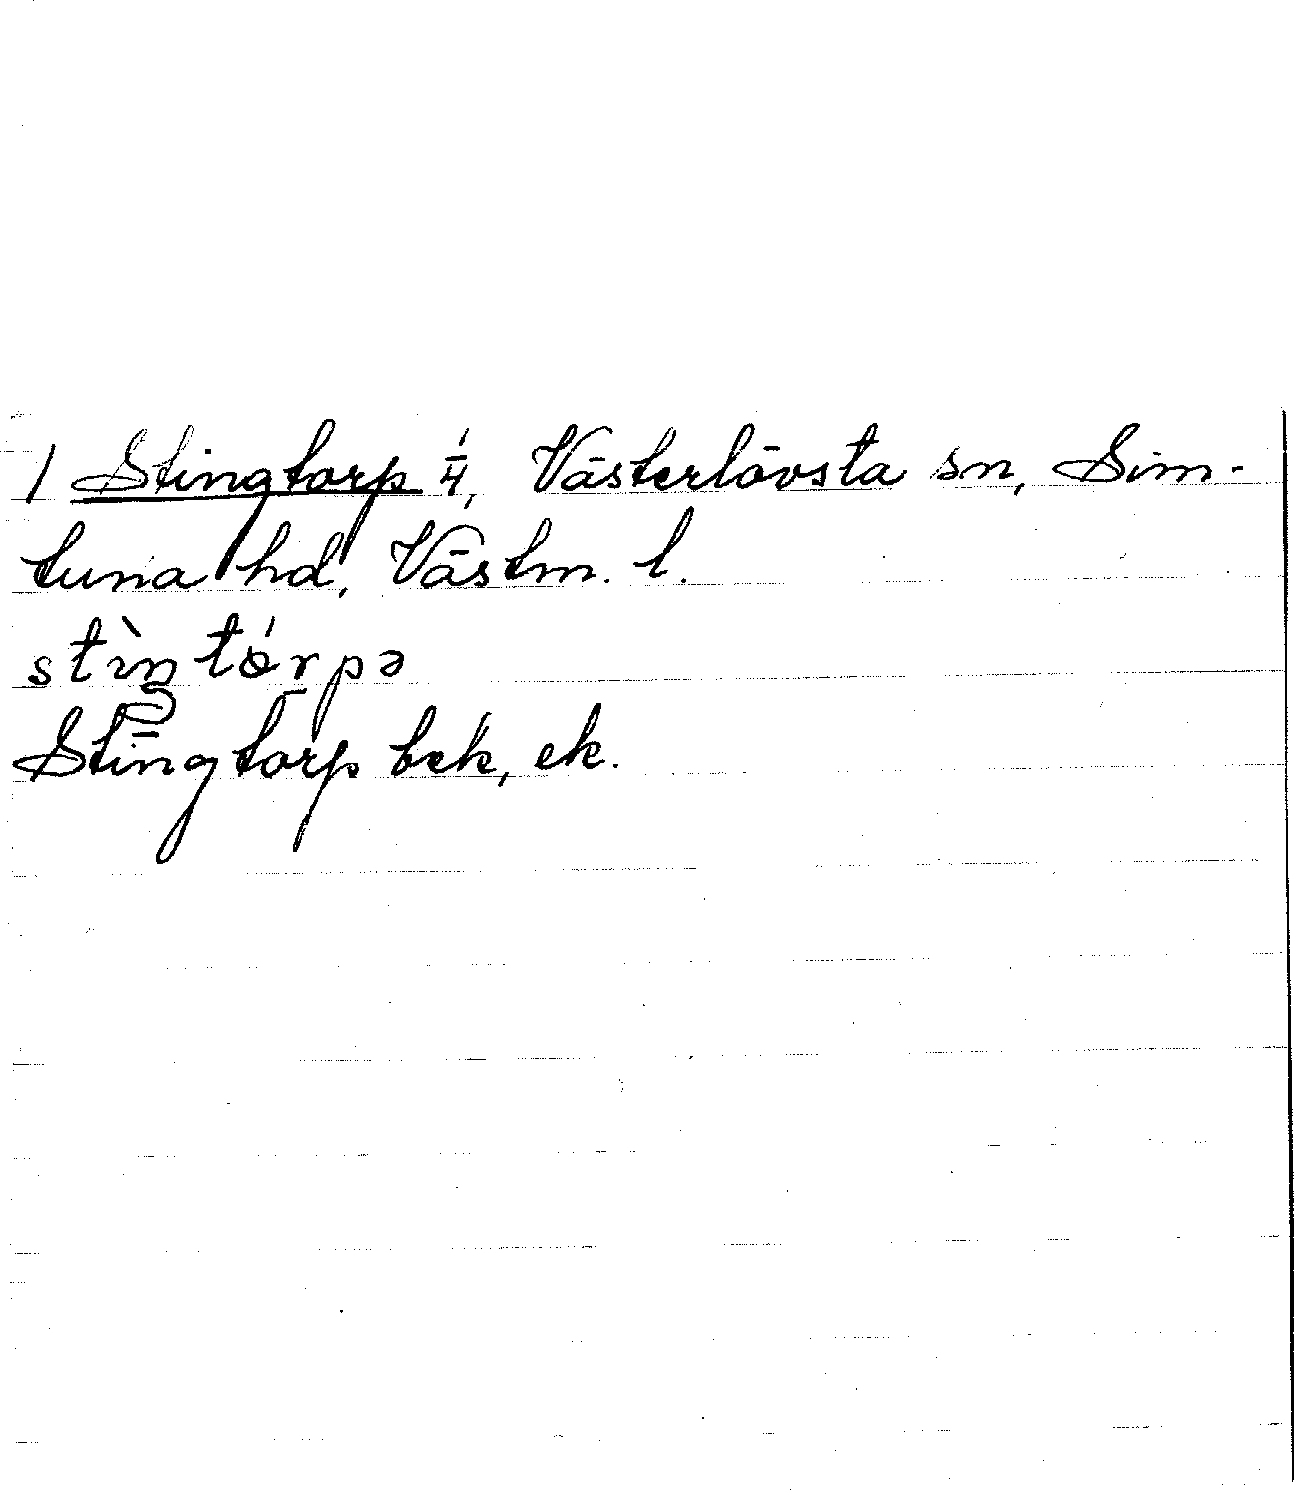 1 Stingtorp 1/4, Västerlövsta sn, Sim-
tuna hd, Västm. l.
stìŋtórpə
Stingtorp bek, ek.